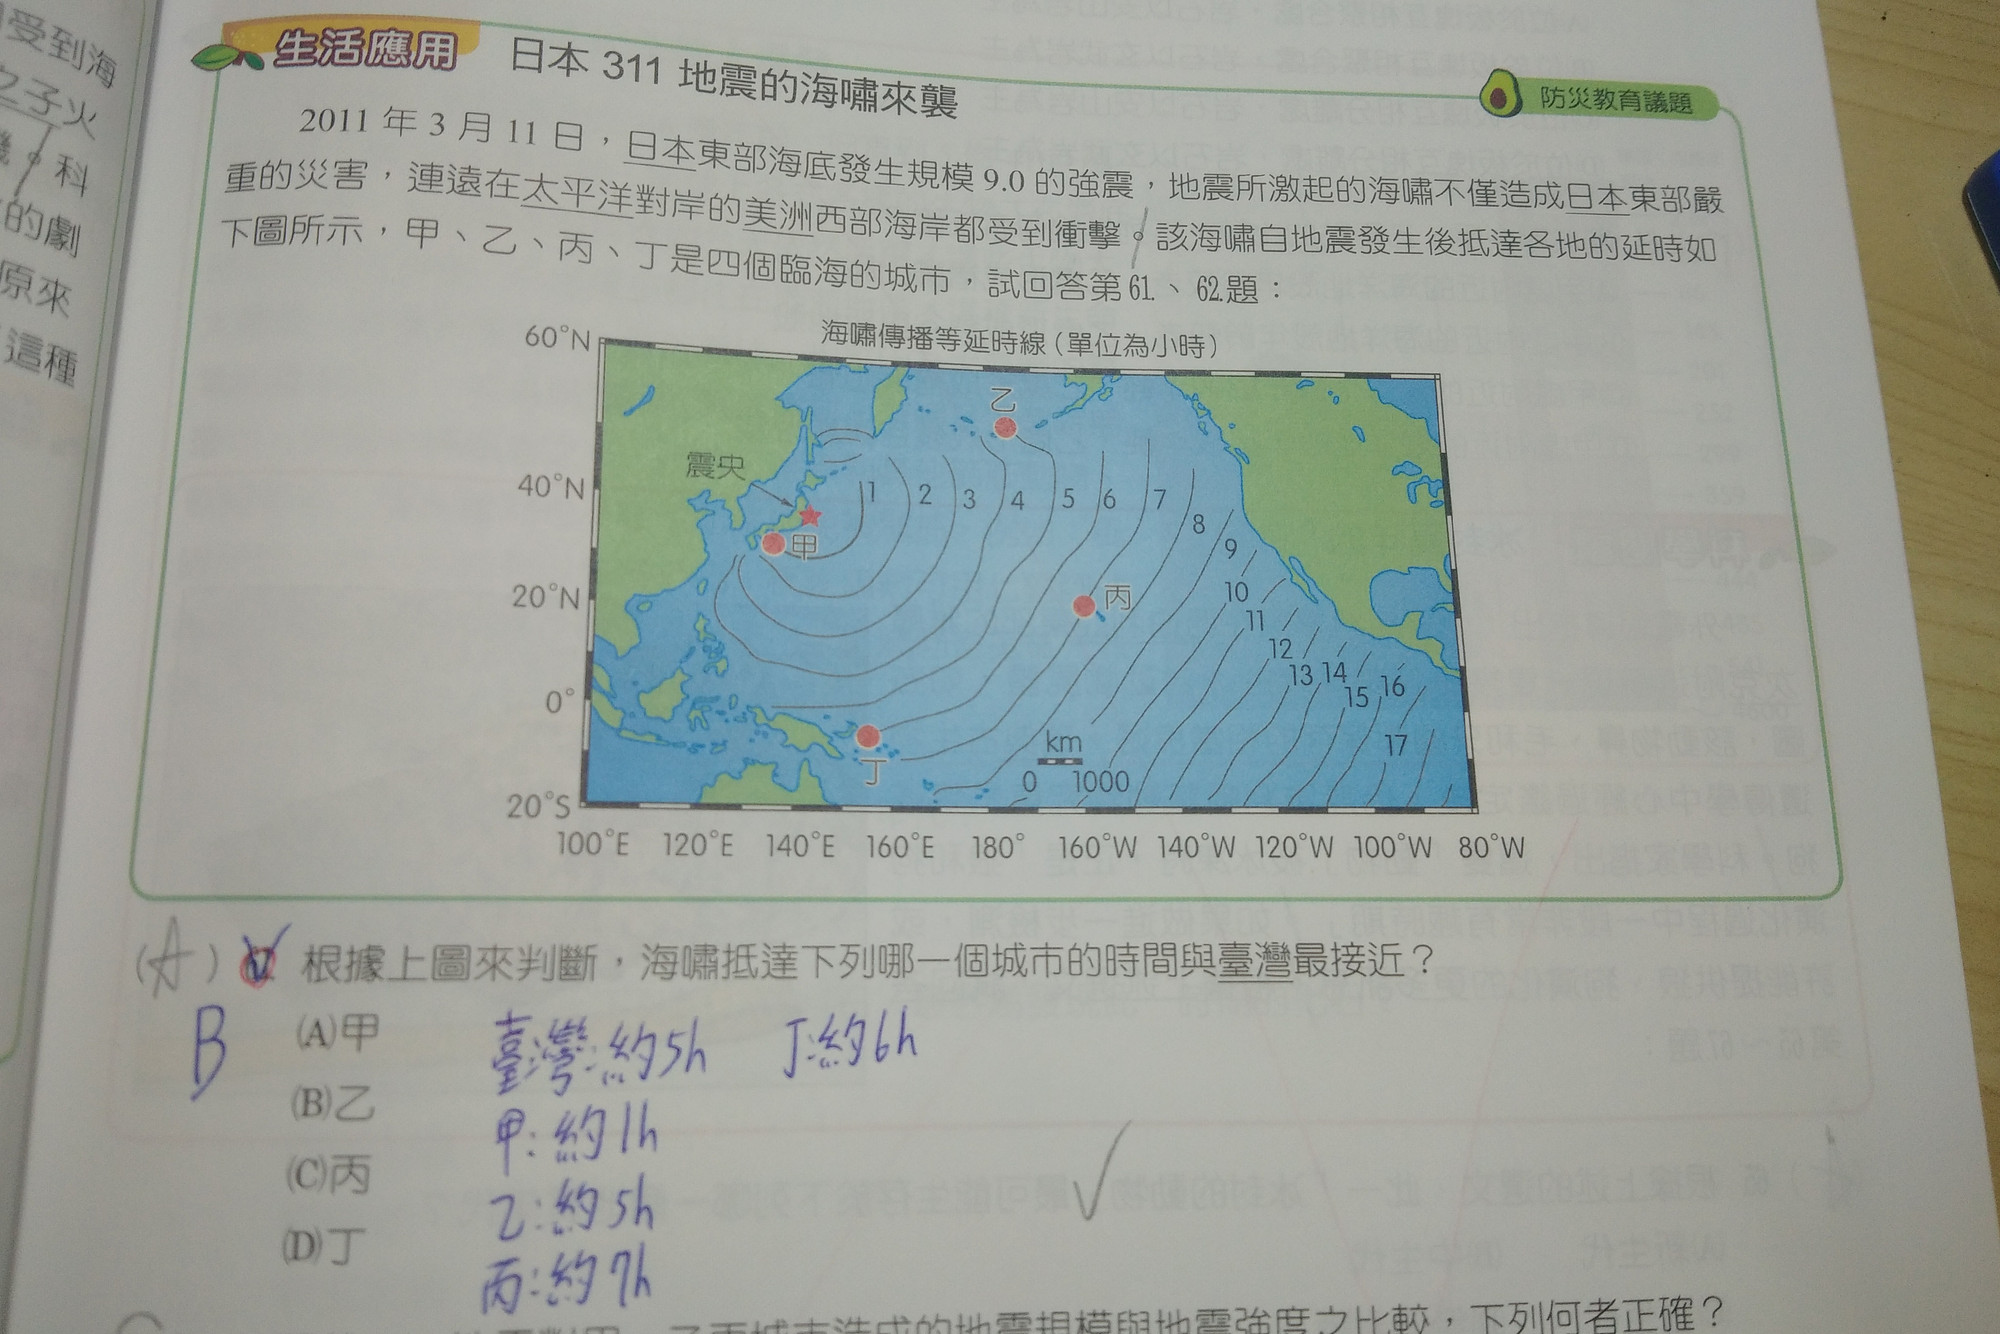 受到海
之子火
機。科
的劇
原來
這種
生活應用 日本 311 地震的海嘯來襲
防災教育議題
2011 年 3 月 11 日，日本東部海底發生規模 9.0 的強震，地震所激起的海嘯不僅造成日本東部嚴
重的災害，連遠在太平洋對岸的美洲西部海岸都受到衝擊。該海嘯自地震發生後抵達各地的延時如
下圖所示，甲、乙、丙、丁是四個臨海的城市，試回答第 61.、62.題：
海嘯傳播等延時線（單位為小時）
60°N
乙
震央
40°N
1 2 3 4 5 6 7 8 9 10 11 12 13 14 15 16 17
甲
丙
20°N
0°
丁
km
0 1000
20°S
100°E 120°E 140°E 160°E 180° 160°W 140°W 120°W 100°W 80°W
(A) 根據上圖來判斷，海嘯抵達下列哪一個城市的時間與臺灣最接近？
B
(A)甲
(B)乙
(C)丙
(D)丁
臺灣:約5h 丁:約6h
甲:約1h
乙:約5h
丙:約7h
乙丙城市造成的地震規模與地震強度之比較，下列何者正確？